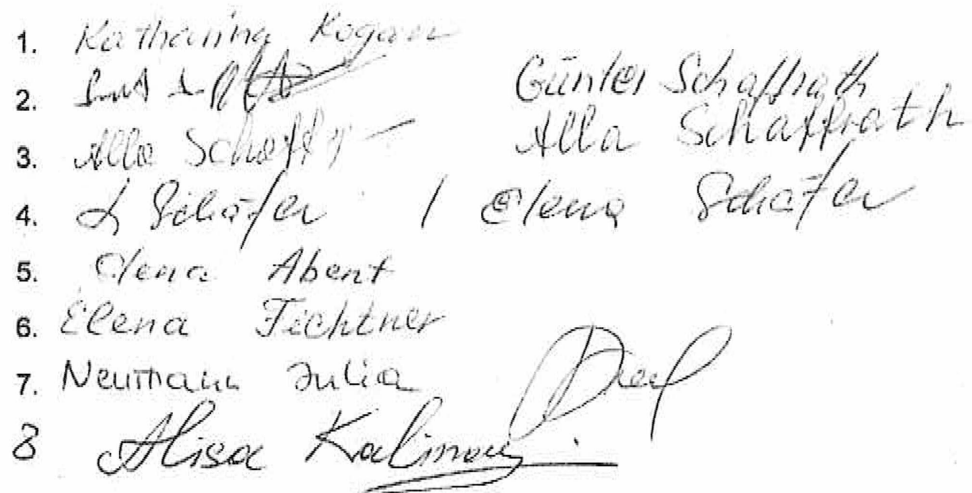 1. Katharina Kogan
2. Günter Schaffrath
3. Alla Schaffr Alla Schaffrath
4. Schäfer / Elena Schäfer
5. Elena Abent
6. Elena Fichtner
7. Neumann Julia
8 Alisa